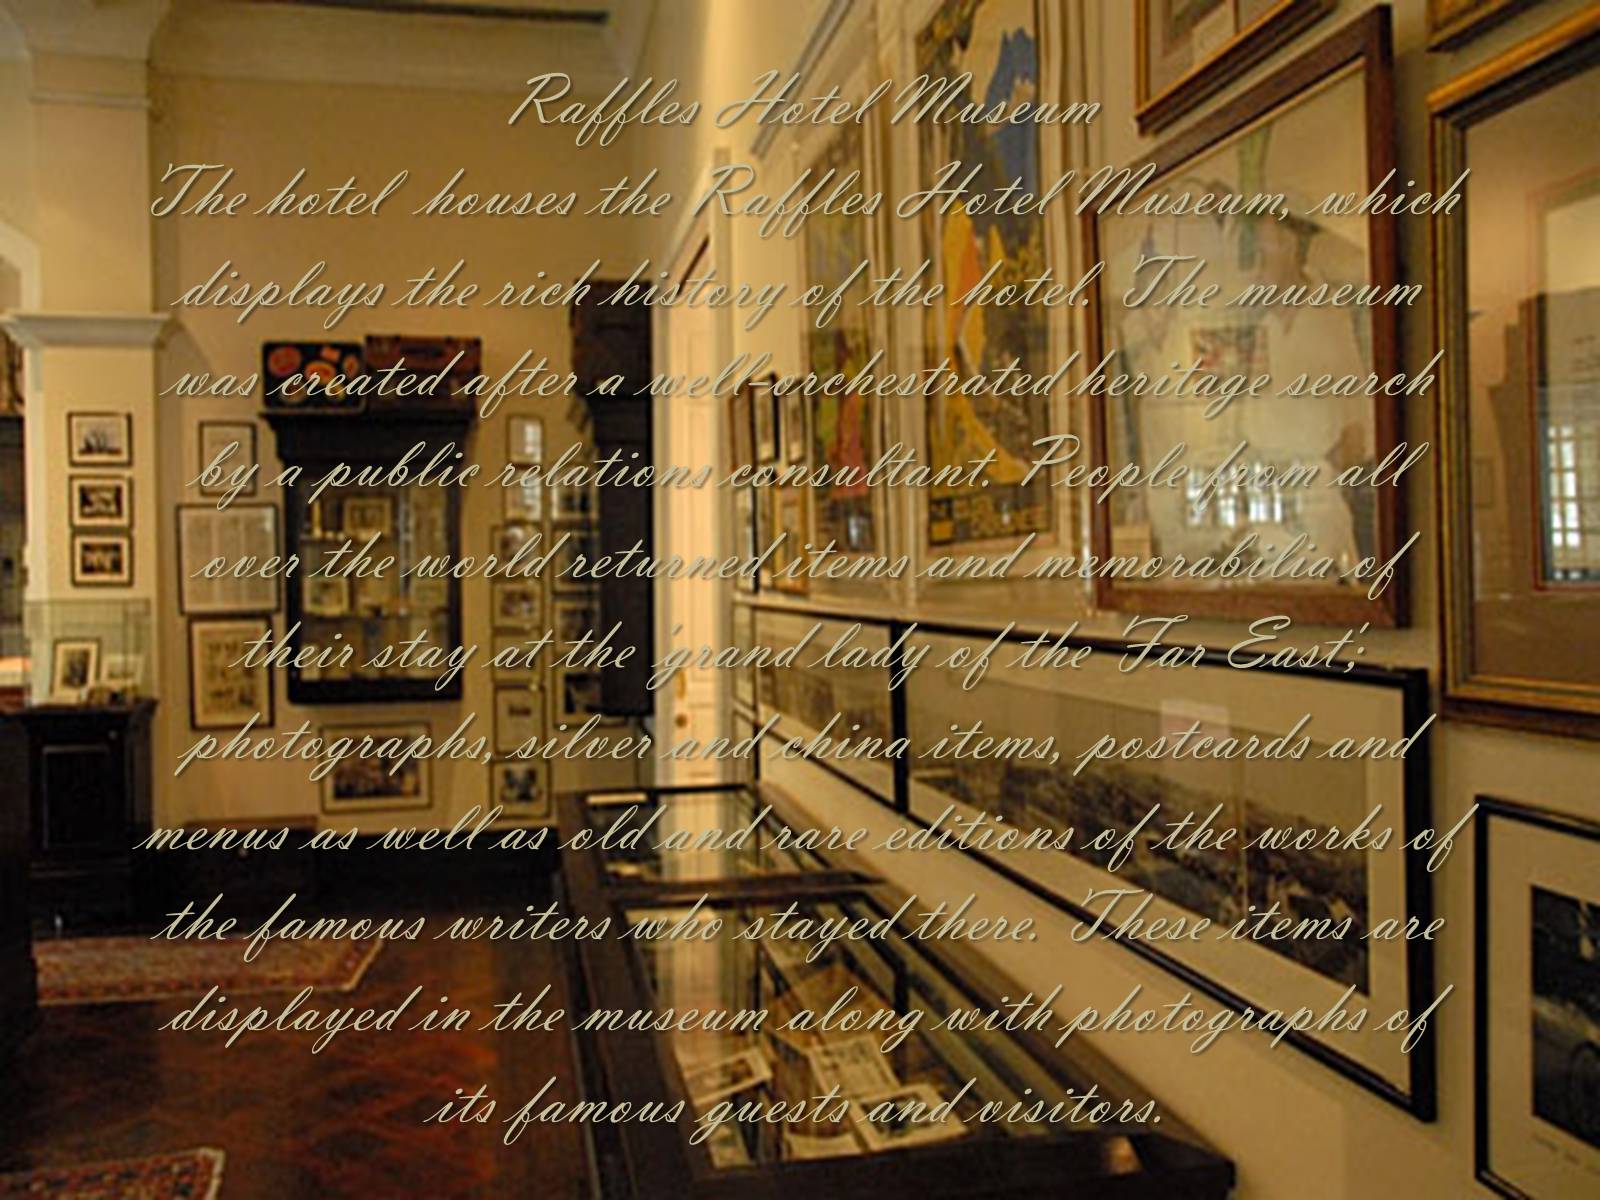 Raffles Hotel Museum
The hotel  houses the Raffles Hotel Museum, which
displays the rich history of the hotel.  The museum
was created after a well-orchestrated heritage search
by a public relations consultant.  People from all
over the world returned items and memorabilia of
their stay at the 'grand lady of the 'Far East';
photographs, silver and china items, postcards and
menus as well as old and rare editions of the works of
the famous writers who stayed there.  These items are
displayed in the museum along with photographs of
its famous guests and visitors.